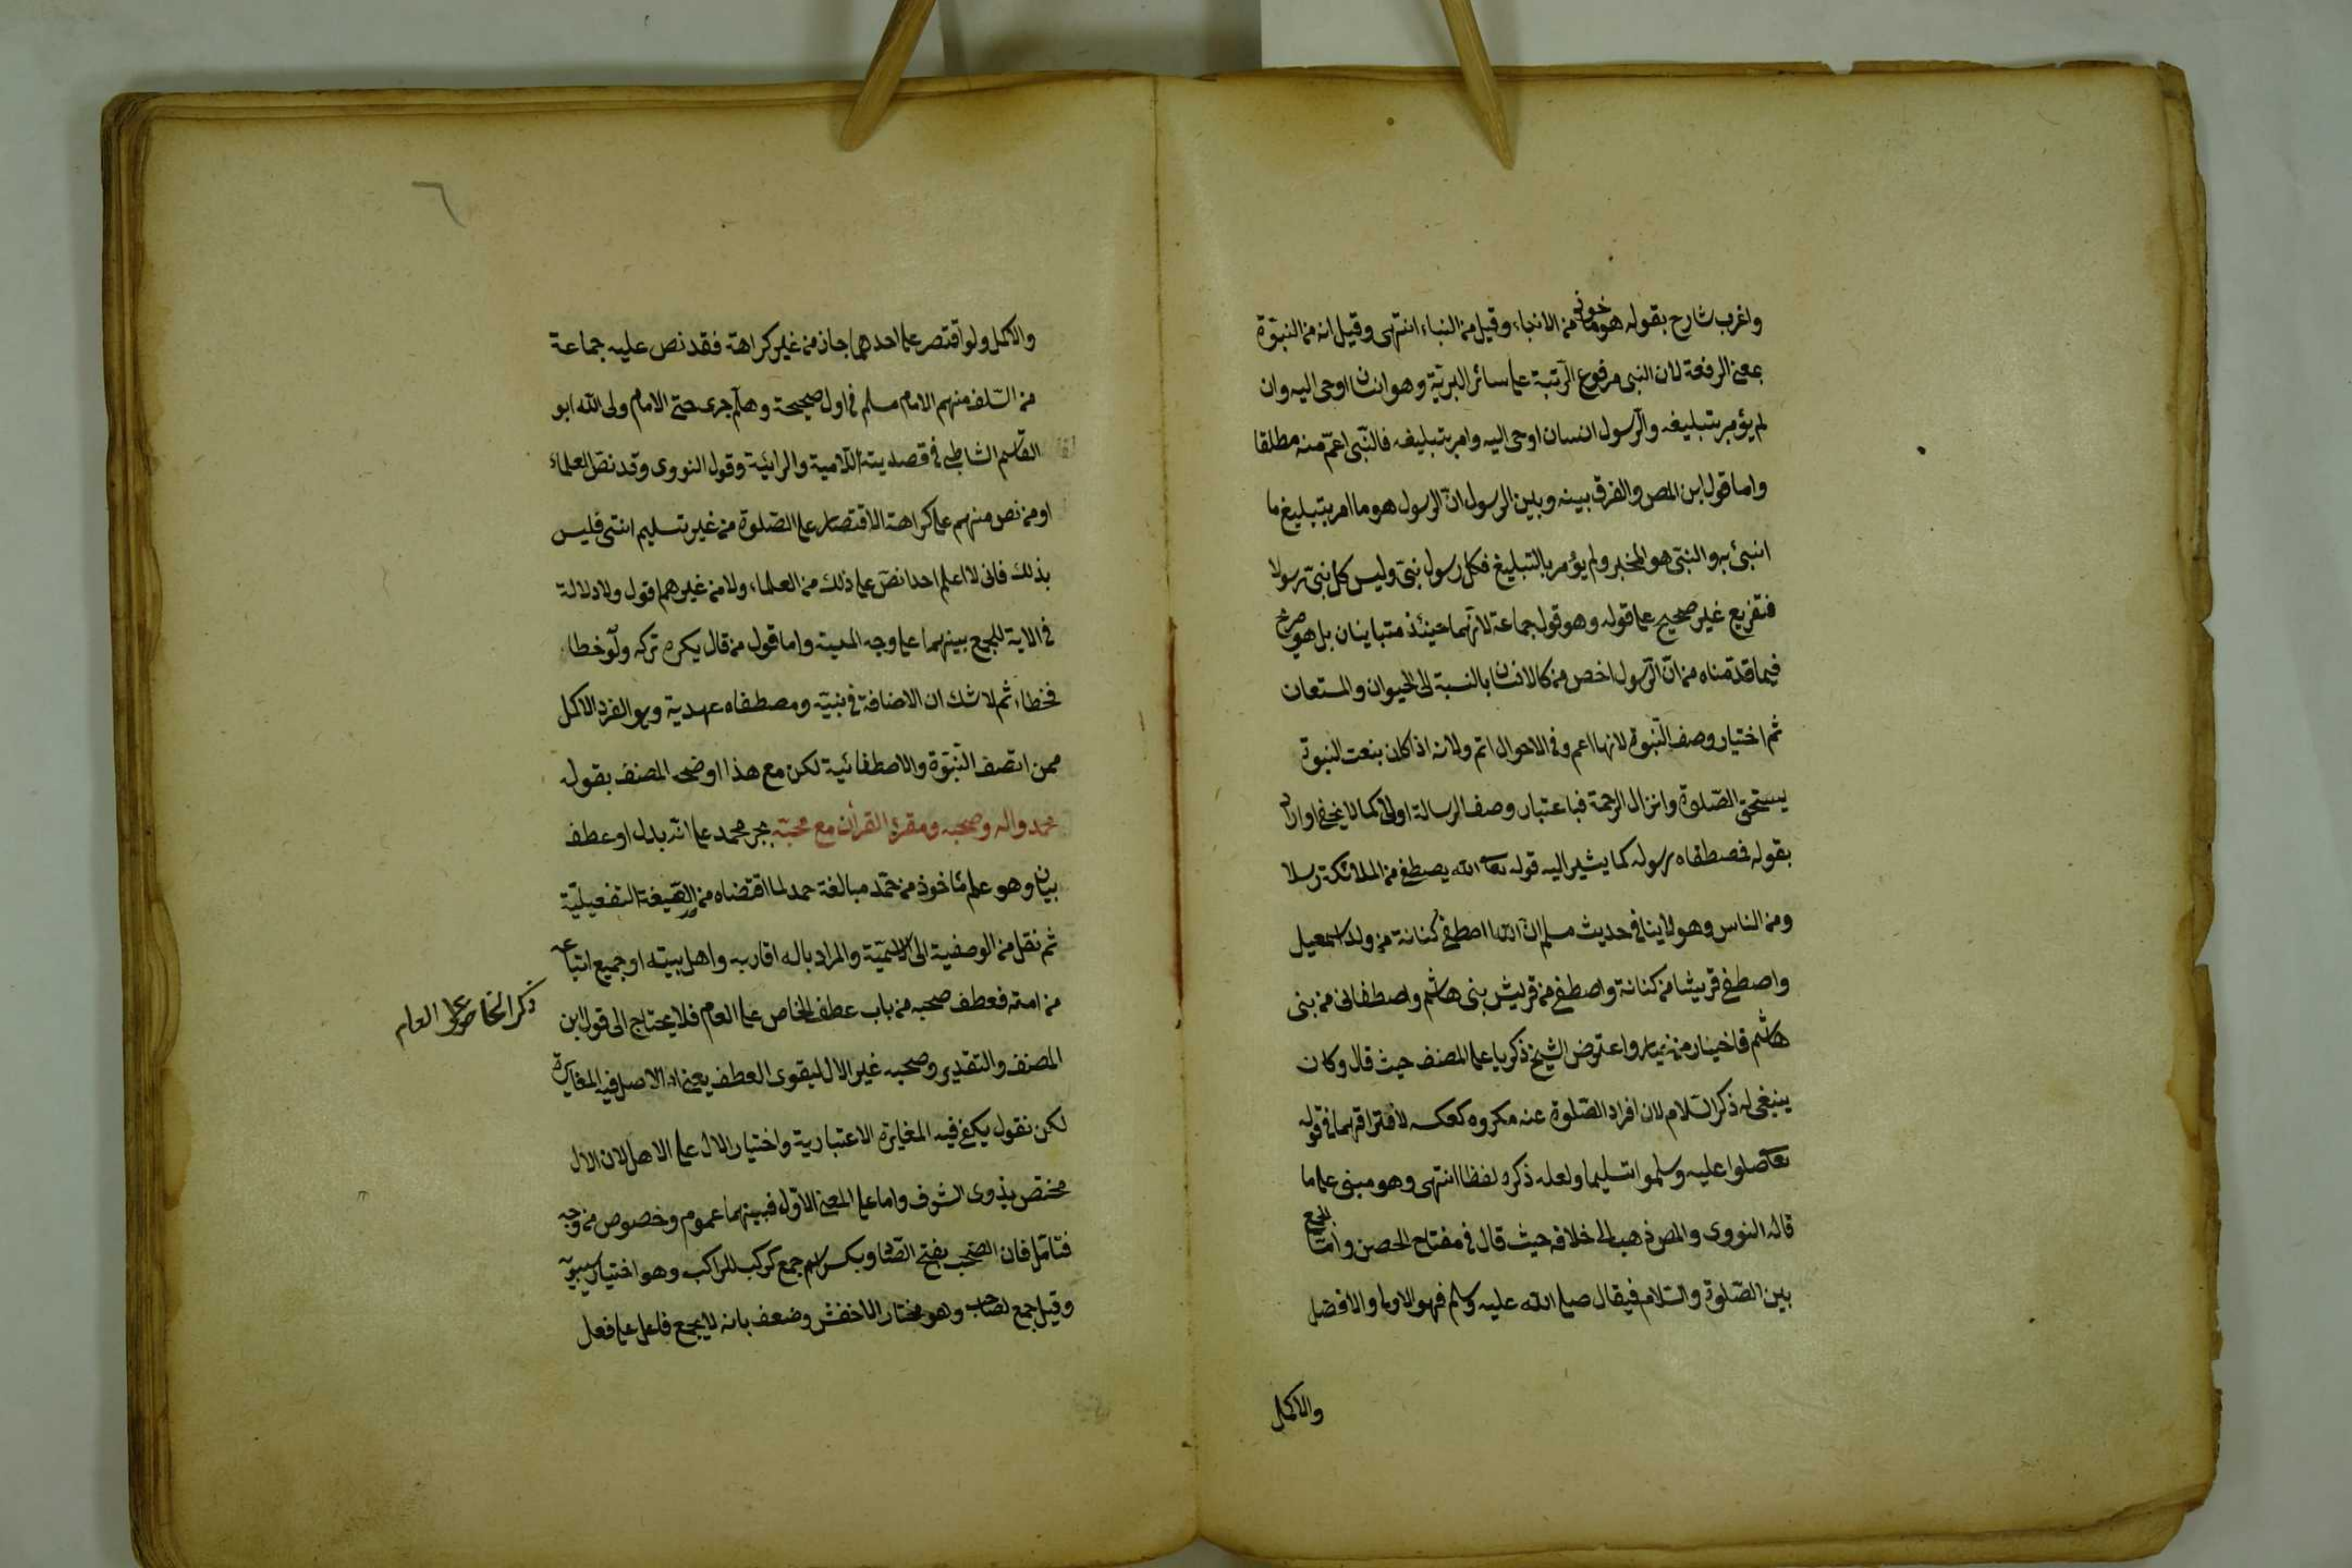 واغرب شارح بقوله هو ماخوذ من الانباء وقيل من النباء انتهى وقيل انه من النبوّة
بمعنى الرفعة لان النبى مرفوع الرّتبة على سائر البريّة وهو انسان اوحى اليه وان
لم يؤمر بتبليغه والرّسول انسان اوحى اليه وامر بتبليغه فالنّبى اعمّ منه مطلقا
واما قول ابن المص والفرق بينه وبين الرسول انّ الرسول هو ما امر بتبليغ ما
انبئ به والنبّى هو المخبر ولم يؤمر بالتبليغ فكل رسول نبىّ وليس كل نبىّ رسولا
فتفريع غير صحيح على قوله وهو قول جماعة لانّهما حينئذ متباينان بل هو صريح
فيما قدّمناه من انّ الرّسول اخص من كالانسان بالنسبة الى الحيوان والمستعان
ثم اختيار وصف النّبوة لانها اعم وفى الاحوال اتم ولانه اذا كان بنعت النبوّة
يستحق الصّلوة وانزال الرحمة فباعتبار وصف الرسالة اولى كما لا يخفى او اراد
بقوله فصطفاه رسوله كما يشير اليه قوله تعا الله يصطفى من الملائكة رسلا
ومن الناس وهو لا ينافى حديث مسلم انّ الله اصطفى كنانة من ولد اسمعيل
واصطفى قريشا من كنانة واصطفى من قريش بنى هاشم واصطفانى من بنى
هاشم فاخيار من خيار واعترض الشيخ ذكريا على المصنف حيث قال وكان
ينبغى له ذكر السّلام لان افراد الصّلوة عنه مكروه كعكسه لافتراقهما فى قوله
تعا صلوا عليه وسلموا تسليما ولعله ذكره لفظا انتهى وهو مبنى على ما
قاله النووى والمص ذهب الى خلافه حيث قال فى مفتاح الحصن وامّا الجمع
بين الصّلوة والسّلام فيقال صلى الله عليه وسلم فهو الاولى والافضل
والاكمل
٦
والاكمل ولو اقتصر على احدهما جاز من غير كراهة فقد نص عليه جماعة
من السّلف منهم الامام مسلم فى اول صحيحة وهلمّ جرى حتى الامام ولى الله ابو
القاسم الشاطبى فى قصديته اللّامية والرائيّة وقول النووى وقد نصّ العلماء
او من نص منهم على كراهة الاقتصار على الصّلوة من غير تسليم انتهى فليس
بذلك فانى لا اعلم احدا نصّ على ذلك من العلماء ولا من غيرهم قول ولا دلالة
فى الاية للجمع بينهما على وجه المعية واما قول من قال يكره تركه ولو خطا
فخطاء ثم لا شك ان الاضافة فى نبيّه ومصطفاه عهدية وهو الفرد الاكمل
ممن اتصف النّبوّة والاصطفائية لكن مع هذا اوضحه المصنف بقوله
محمد واله وصحبه ومقرئ القرأن مع محبّه بجر محمد على انّه بدل او عطف
بيان وهو علم مأخوذ من حمّد مبالغة حمد لما اقتضاه من الصّيغة التفعيليّة
ثم نقل من الوصفية الى الاسميّة والمراد باله اقاربه واهل بيته او جميع اتباعه
من امته فعطف صحبه من باب عطف الخاص على العام فلا يحتاج الى قول ابن
ذكر الخاص على العام
المصنف والتقدير وصحبه غير الال ليقوى العطف يعنى اذ الاصل فيه المغايرة
لكن نقول يكفى فيه المغايرة الاعتبارية واختيار الال على الاهل لان الال
مختص بذوى الشرف واما على المعنى الاوّل فبينهما عموم وخصوص من وجه
فتامّل فان الصّحب بفتح الصّاد وبكسر اسم جمع كركب للراكب وهو اختيار سيبويه
وقيل جمع لصاحب وهو مختار الاخفش وضعف بانه لا يجمع فاعل على فعل